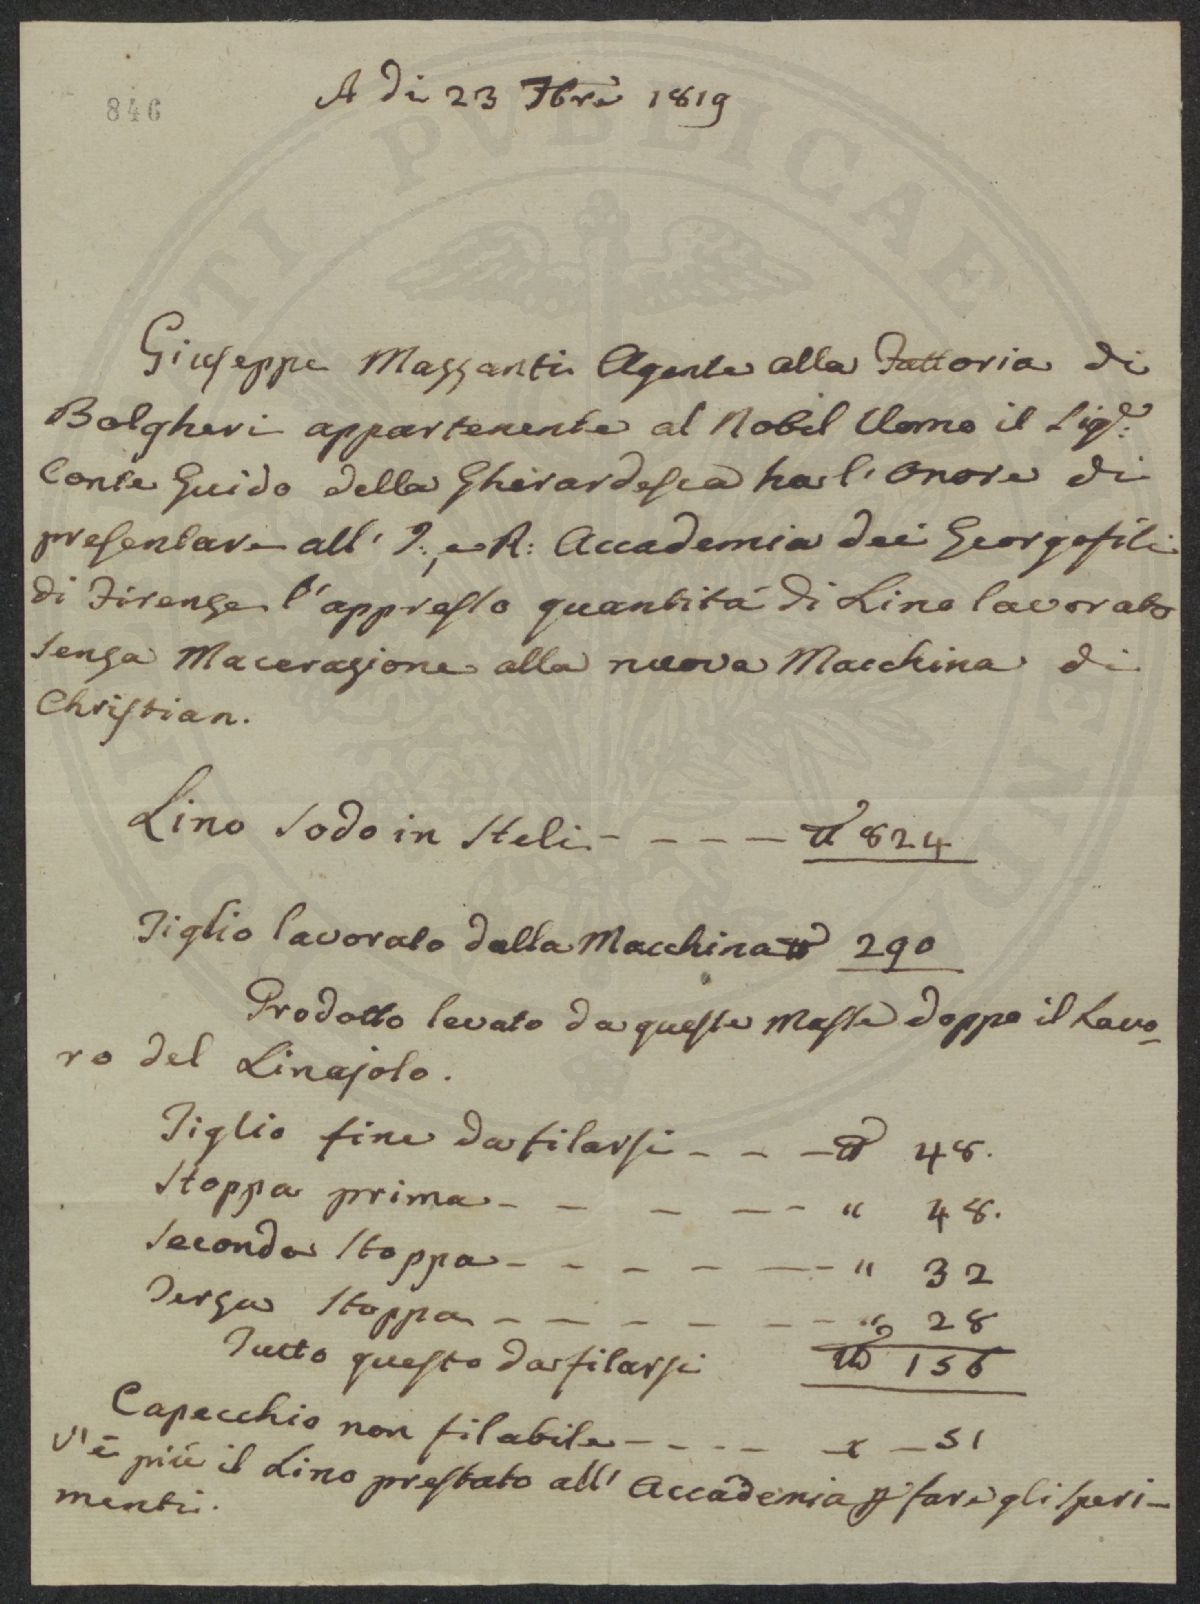 846
A di 23 7bre 1819
Giuseppe Mazzanti Agente alla Fattoria di
Bolgheri appartenente al Nobil Uomo il Sigr:
Conte Guido della Gherardesca ha l' Onore di
presentare all' I: e R: Accademia dei Georgofili
di Firenze l'appresso quantità di Lino lavorato
senza Macerazione alla nuova Macchina di
Christian.
Lino sodo in Steli - - - - ℔ 824
Tiglio lavorato dalla Macchina ℔ 290
Prodotto levato da queste Masse doppo il Lavo-
ro del Linajolo.
Tiglio fine da filarsi - - - ℔ 48.
Stoppa prima - - - - - " 48.
Seconda Stoppa - - - - - - " 32
Terza Stoppa - - - - - - - " 28
Tutto questo da filarsi ℔ 156
Capecchio non filabile - - - - - 51
V'è più il Lino prestato all' Accademia p fare gli speri-
menti.
PUBLICAE